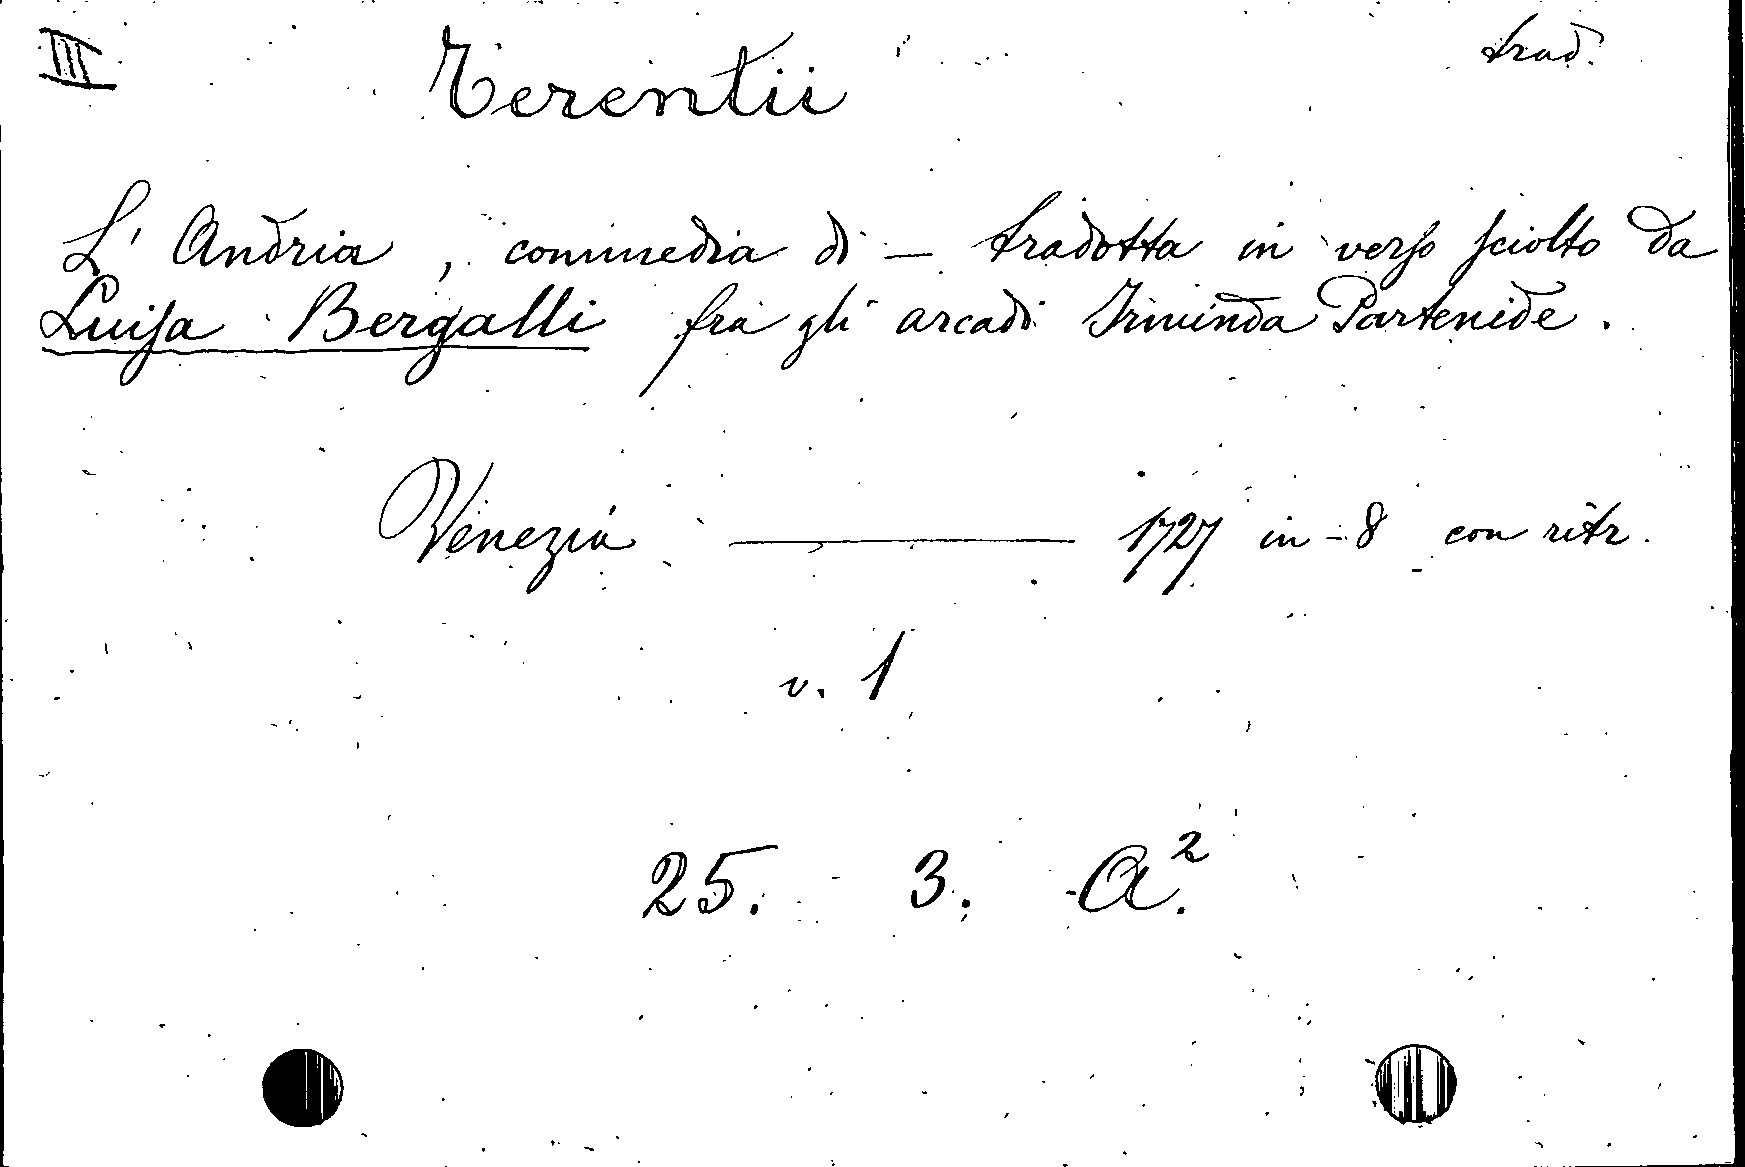 III
Terentii
trad.
L' Andria, commedia di — tradotta in verso sciolto da
Luisa Bergalli fra gli arcadi Irminda Partenide.
Venezia — 1727 in-8 con ritr.
v. 1
25. 3. A².